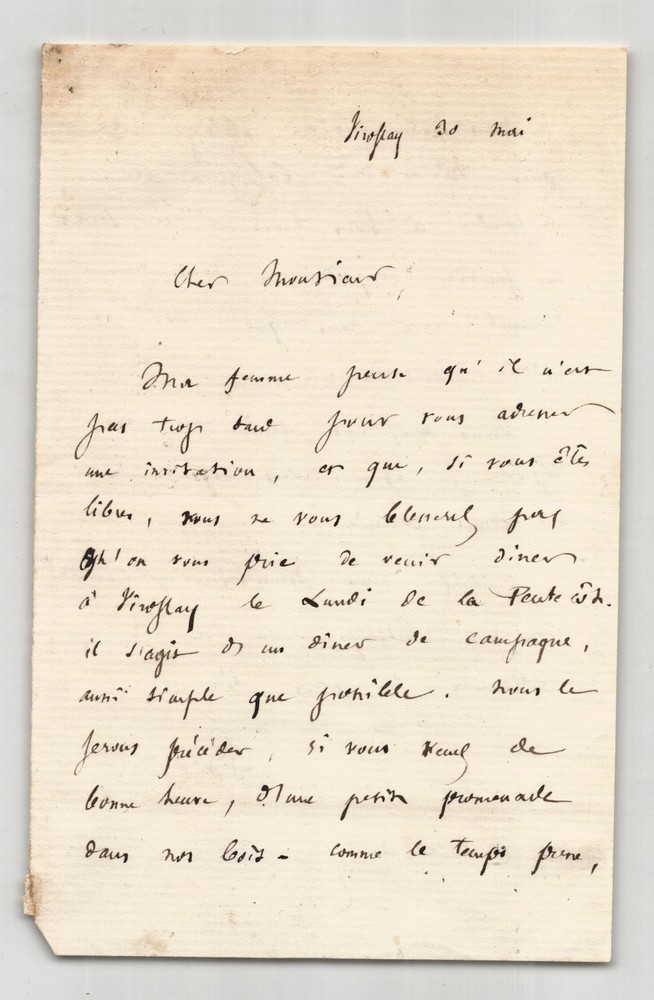 Viroflay 30 mai
Cher Monsieur,
Ma femme pense qu'il n'est
pas trop tard pour vous adresser
une invitation, et que, si vous êtes
libres, vous ne vous blesserez pas
qu'on vous prie de venir dîner
à Viroflay le Lundi de la Pentecôte.
il s'agit d'un dîner de campagne,
aussi simple que possible. Nous le
ferons précéder, si vous venez de
bonne heure, d'une petite promenade
dans nos bois - comme le temps presse,